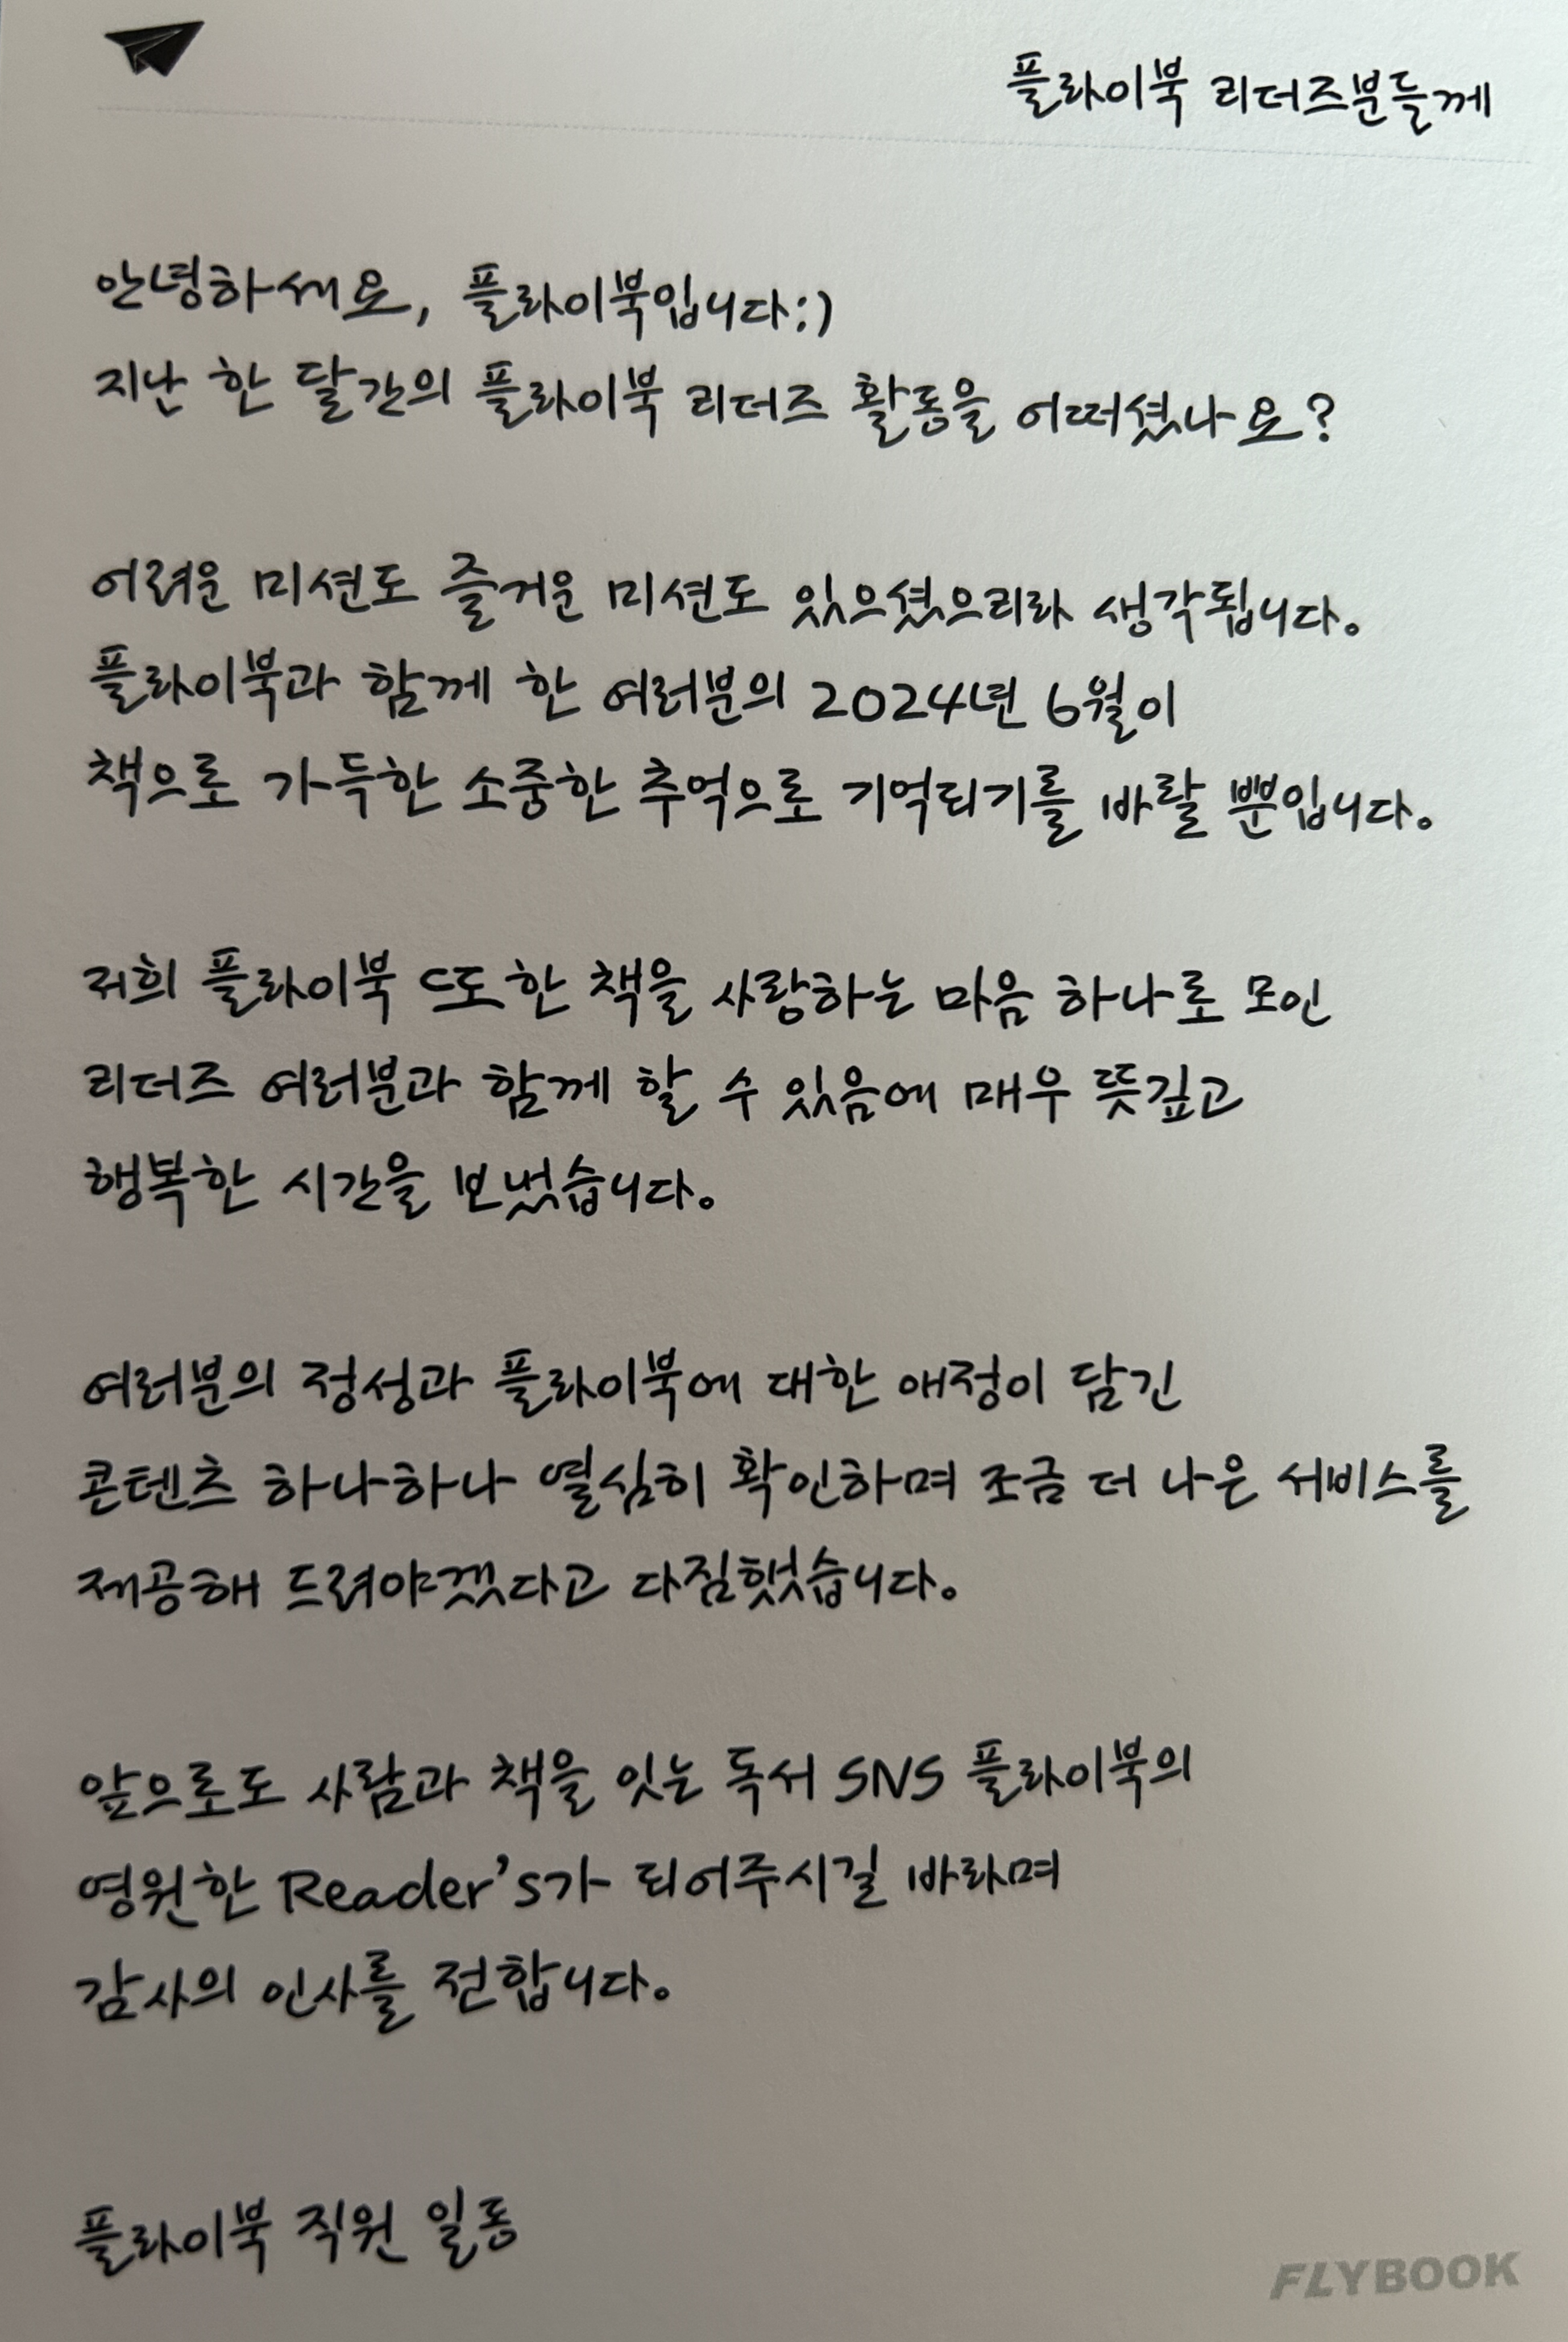 플라이북 리더즈분들께
안녕하세요, 플라이북입니다:)
지난 한 달간의 플라이북 리더즈 활동을 어떠셨나요?
어려운 미션도 즐거운 미션도 있으셨으리라 생각됩니다.
플라이북과 함께 한 여러분의 2024년 6월이
책으로 가득한 소중한 추억으로 기억되기를 바랄 뿐입니다.
저희 플라이북 또한 책을 사랑하는 마음 하나로 모인
리더즈 여러분과 함께 할 수 있음에 매우 뜻깊고
행복한 시간을 보냈습니다.
여러분의 정성과 플라이북에 대한 애정이 담긴
콘텐츠 하나하나 열심히 확인하며 조금 더 나은 서비스를
제공해 드려야겠다고 다짐했습니다.
앞으로도 사람과 책을 잇는 독서 SNS 플라이북의
영원한 Reader's가 되어주시길 바라며
감사의 인사를 전합니다.
플라이북 직원 일동
FLYBOOK